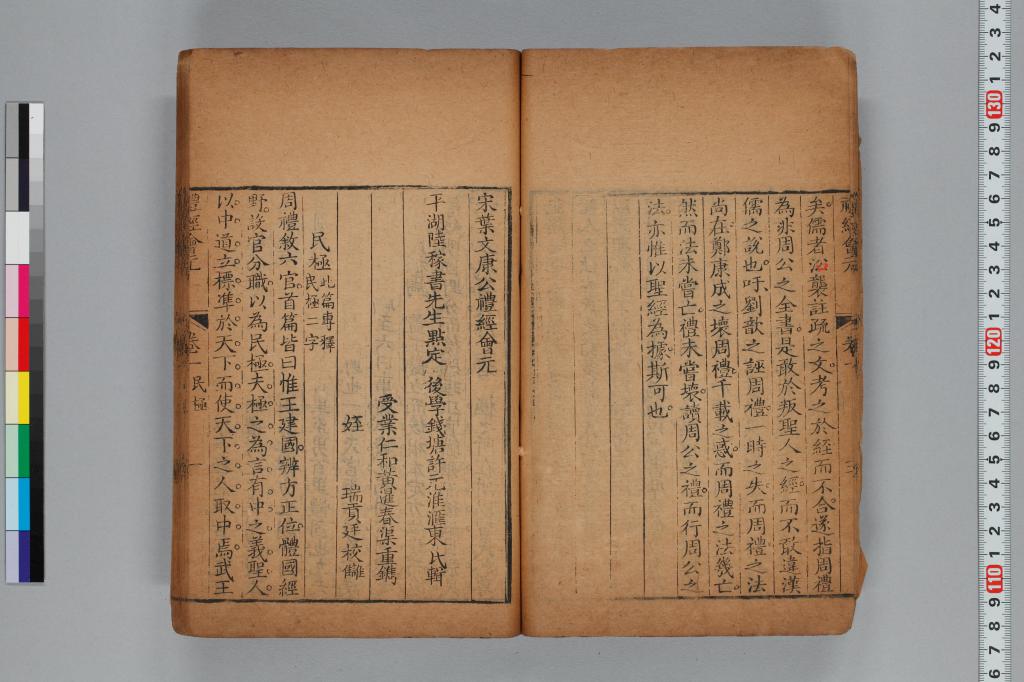 矣儒者㳂襲註疏之文考之於經而不合遂指周禮
為非周公之全書是敢於叛聖人之經而不敢違漢
儒之說也吁劉歆之誣周禮一時之失而周禮之法
尚在鄭康成之壞周禮千載之惑而周禮之法幾亡
然而法未嘗亡禮未嘗壞讀周公之禮而行周公之
法亦惟以聖經為據斯可也
宋葉文康公禮經會元
平湖陸稼書先生點定 後學錢塘許元淮滙東氏輯
受業仁和黃暹春渠重鐫
姪 瑞貢廷校讎
民極 此篇專釋民極二字
周禮敘六官首篇皆曰惟王建國辨方正位體國經
野設官分職以為民極夫極之為言有中之義聖人
以中道立標準於天下而使天下之人取中焉武王
禮經會元 卷一 民極 一